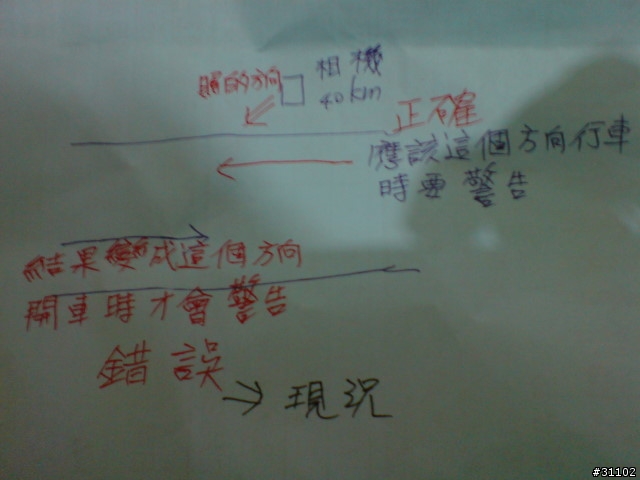 相機
照的方向
40km
正確
應該這個方向行車
時要警告
結果變成這個方向
開車時才會警告
錯誤
→現況
#31102